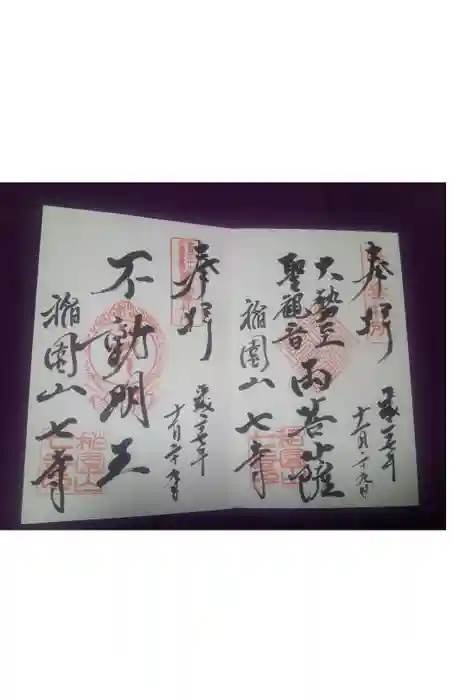 奉拝
大勢至
聖観音
両菩薩
稲園山七寺
十一月二十九日
奉拝
不動明王
稲園山七寺
平成二十七年
十一月二十九日